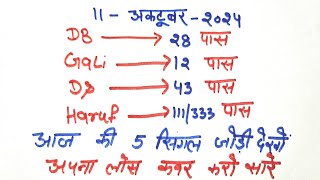 11 - अक्टूबर - २०२४
DB → 28 पास
Gali → 12 पास
DS → 43 पास
Haruf → 111/333 पास
आज की 5 सिंगल जोड़ी देखो
अपना लोस कवर करो सारे